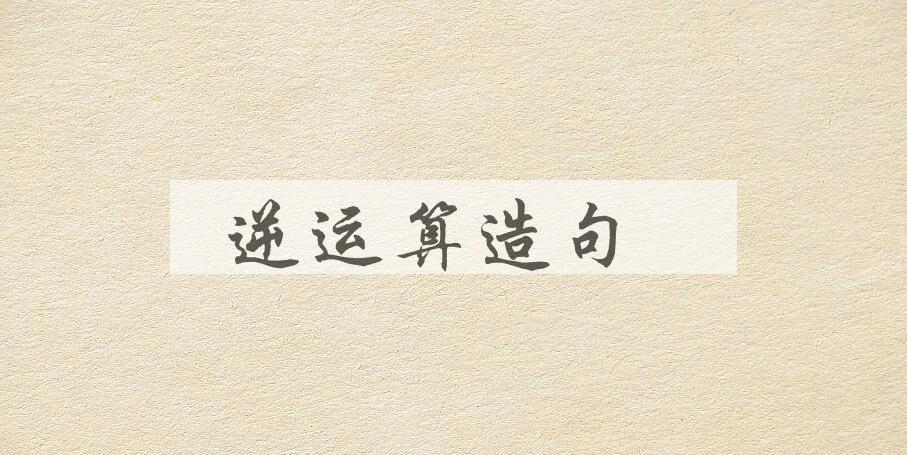 逆运算造句